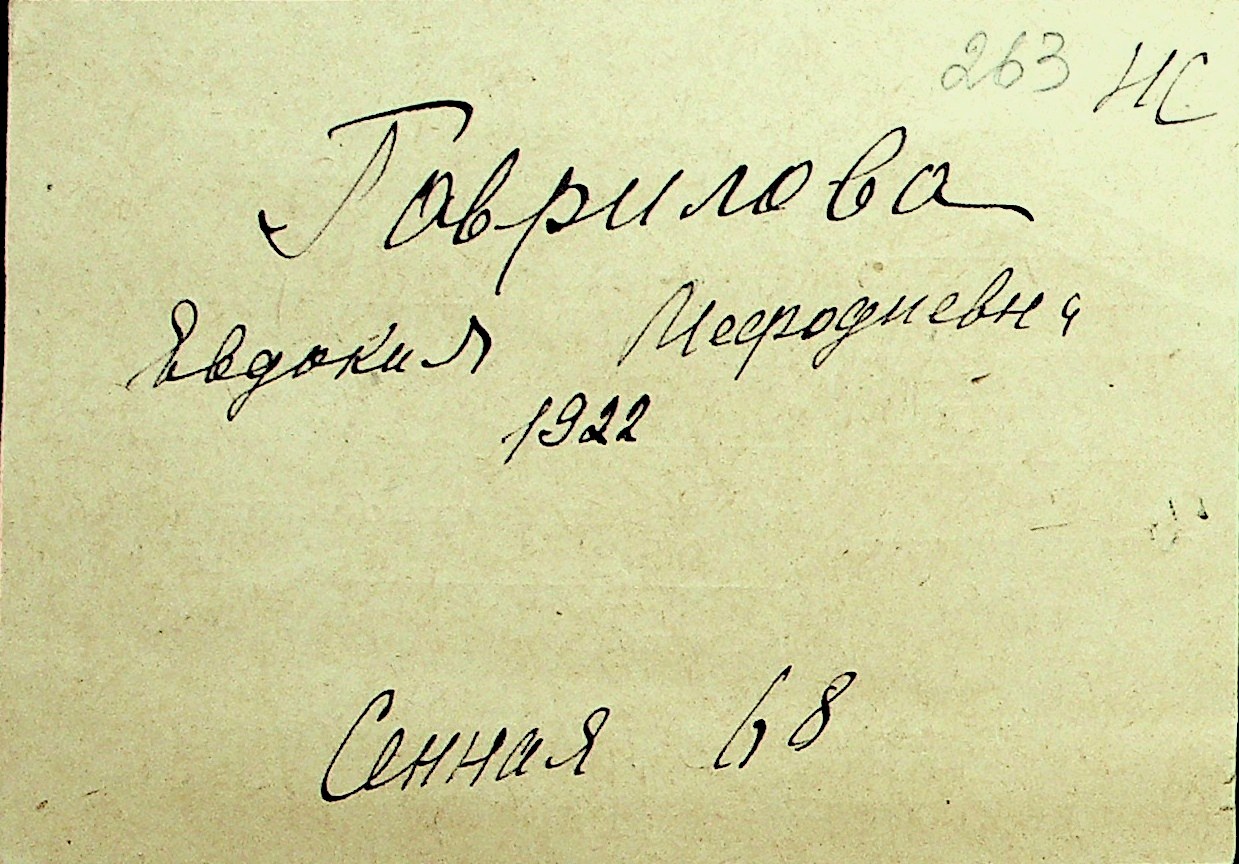 263 НС
Гаврилова
Евдокия Мефодиевна
1922
Сенная 68